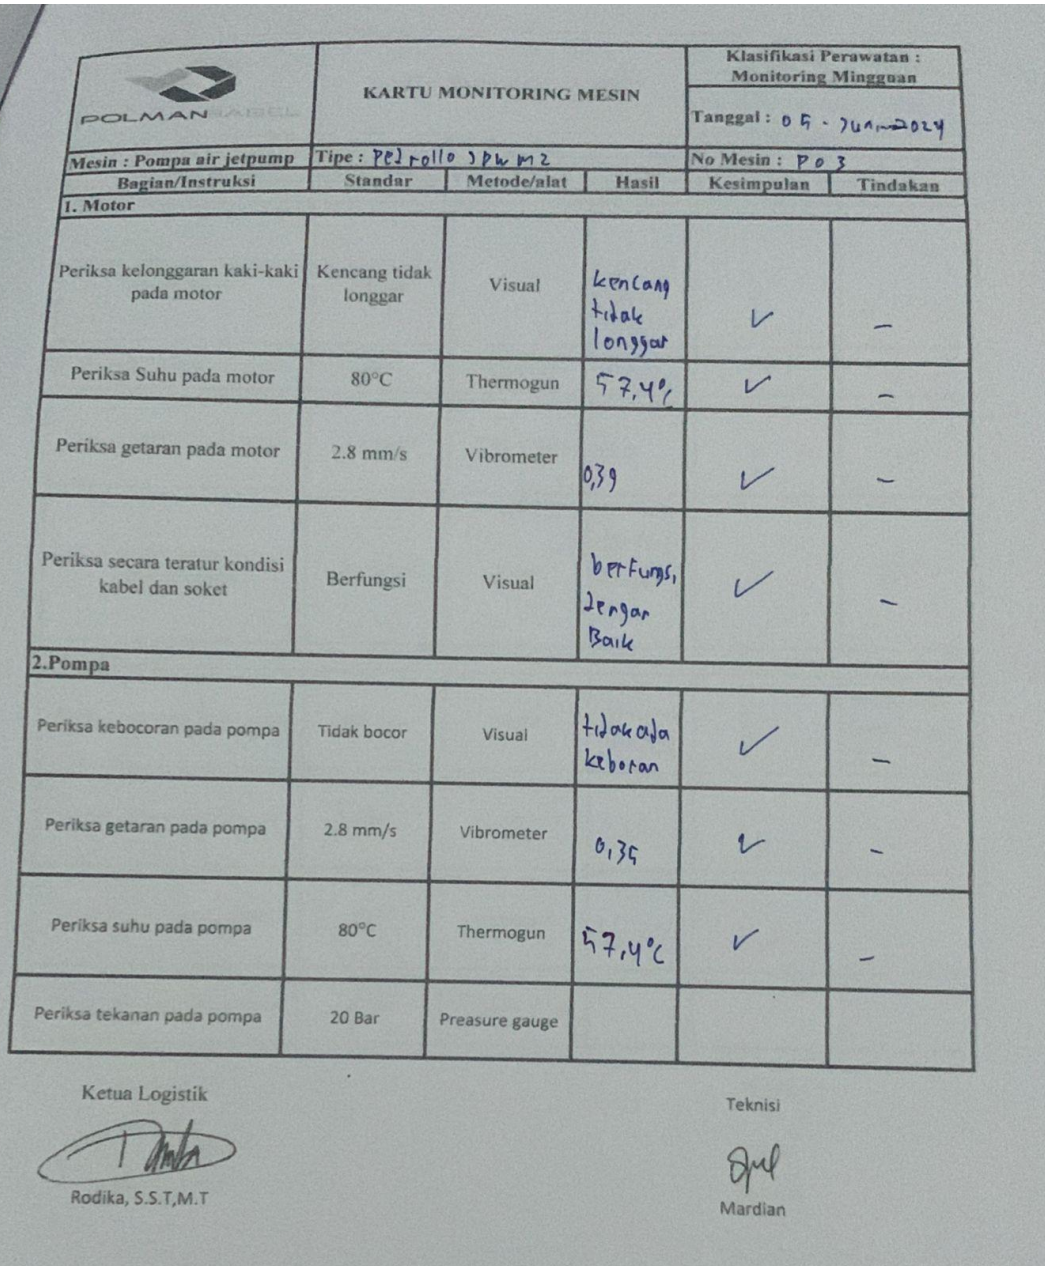 POLMAN BABEL
KARTU MONITORING MESIN
Klasifikasi Perawatan :
Monitoring Mingguan
Tanggal : 05 - Juni - 2024
Mesin : Pompa air jetpump
Tipe : Pedrollo JPW M2
No Mesin : P03
Bagian/Instruksi Standar Metode/alat Hasil Kesimpulan Tindakan
1. Motor
Periksa kelonggaran kaki-kaki
pada motor
Kencang tidak
longgar
Visual
kencang
tidak
longgar
✓ –
Periksa Suhu pada motor 80°C Thermogun 57,4°C ✓ –
Periksa getaran pada motor 2.8 mm/s Vibrometer 0,39 ✓ –
Periksa secara teratur kondisi
kabel dan soket
Berfungsi
Visual
berfungsi
dengan
Baik
✓ –
2.Pompa
Periksa kebocoran pada pompa Tidak bocor Visual
tidak ada
keboran
✓ –
Periksa getaran pada pompa 2.8 mm/s Vibrometer 0,35 ✓ –
Periksa suhu pada pompa 80°C Thermogun 57,4°C ✓ –
Periksa tekanan pada pompa 20 Bar Preasure gauge
Ketua Logistik
Rodika, S.S.T,M.T
Teknisi
Mardian